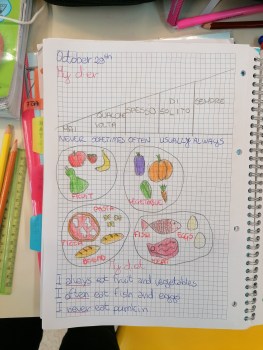 October 29th
My diet
MAI
QUALCHE VOLTA
SPESSO
DI SOLITO
SEMPRE
NEVER SOMETIMES OFTEN USUALLY ALWAYS
FRUIT
VEGETABLE
PASTA
PIZZA
BREAD
FISH
EGGS
MEAT
My diet
I always eat fruit and vegetables
I often eat fish and eggs
I never eat pumpkin